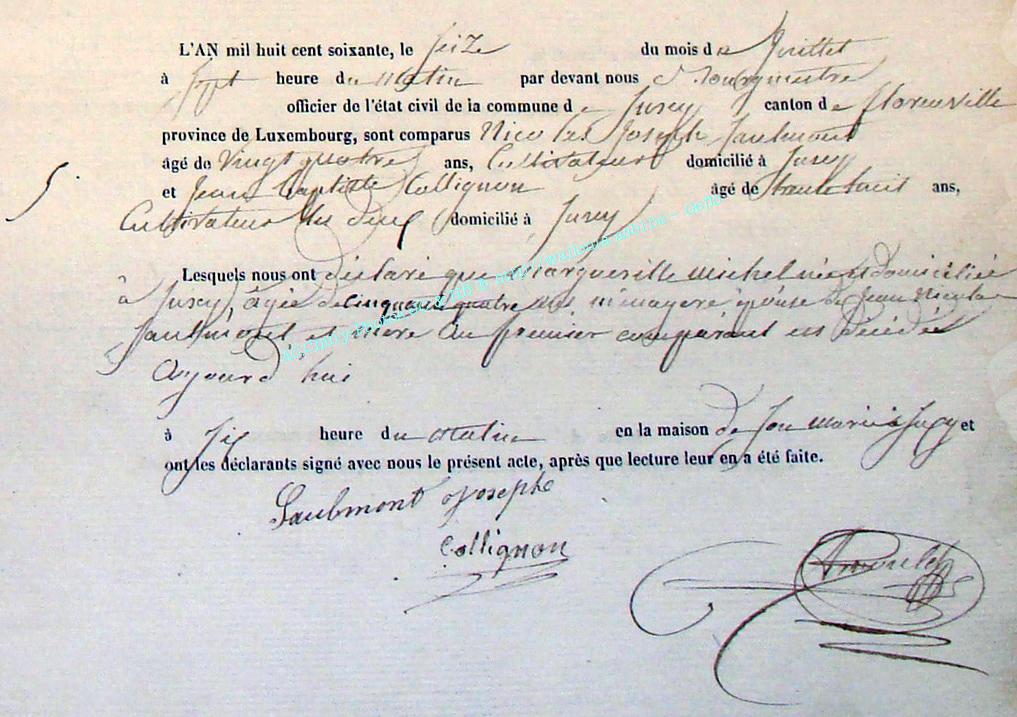 L'AN mil huit cent soixante, le seize du mois de Juillet
à sept heure du matin par devant nous Bourgmestre
officier de l'état civil de la commune de Jusey canton de Florenville
province de Luxembourg, sont comparus Nicolas Joseph Saulmont
âgé de vingt quatre ans, Cultivateur domicilié à
et Jean Baptiste Collignon âgé de trente huit ans,
Cultivateur les deux domicilié à
5.
Lesquels nous ont déclaré que Margueritte Michel née et domiciliée
à âgée de cinquante quatre ans ménagère épouse de Jean Nicolas
Saulmont et mère du premier comparant est décédée
aujourd'hui
à six heure du matin en la maison de son mari à et
ont les déclarants signé avec nous le présent acte, après que lecture leur en a été faite.
Saulmont Joseph
Collignon